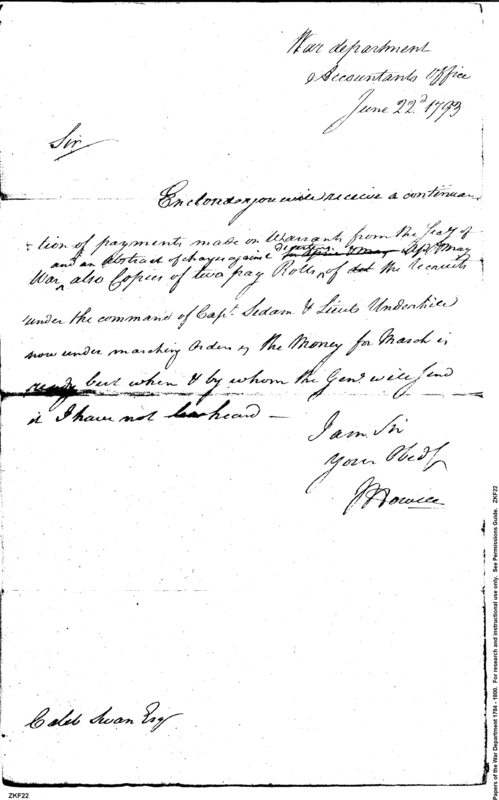 War department
Accountants Office
June 22d 1793
Sir
Enclosed you will receive a continua
tion of payments made on Warrants from the Secy of
and an abstract of charges against
War, also Copies of two pay Rolls, of the recruits
under the command of Capt. Sedam & Lieut Underhill
now under marching Orders, the Money for March is
ready but when & by whom the Genl. will send
it I have not heard —
I am Sir
Your Obedt
J Howell
Caleb Swan Esq
ZKF22
Papers of the War Department 1784 - 1800. For research and instructional use only. See Permissions Guide. ZKF22